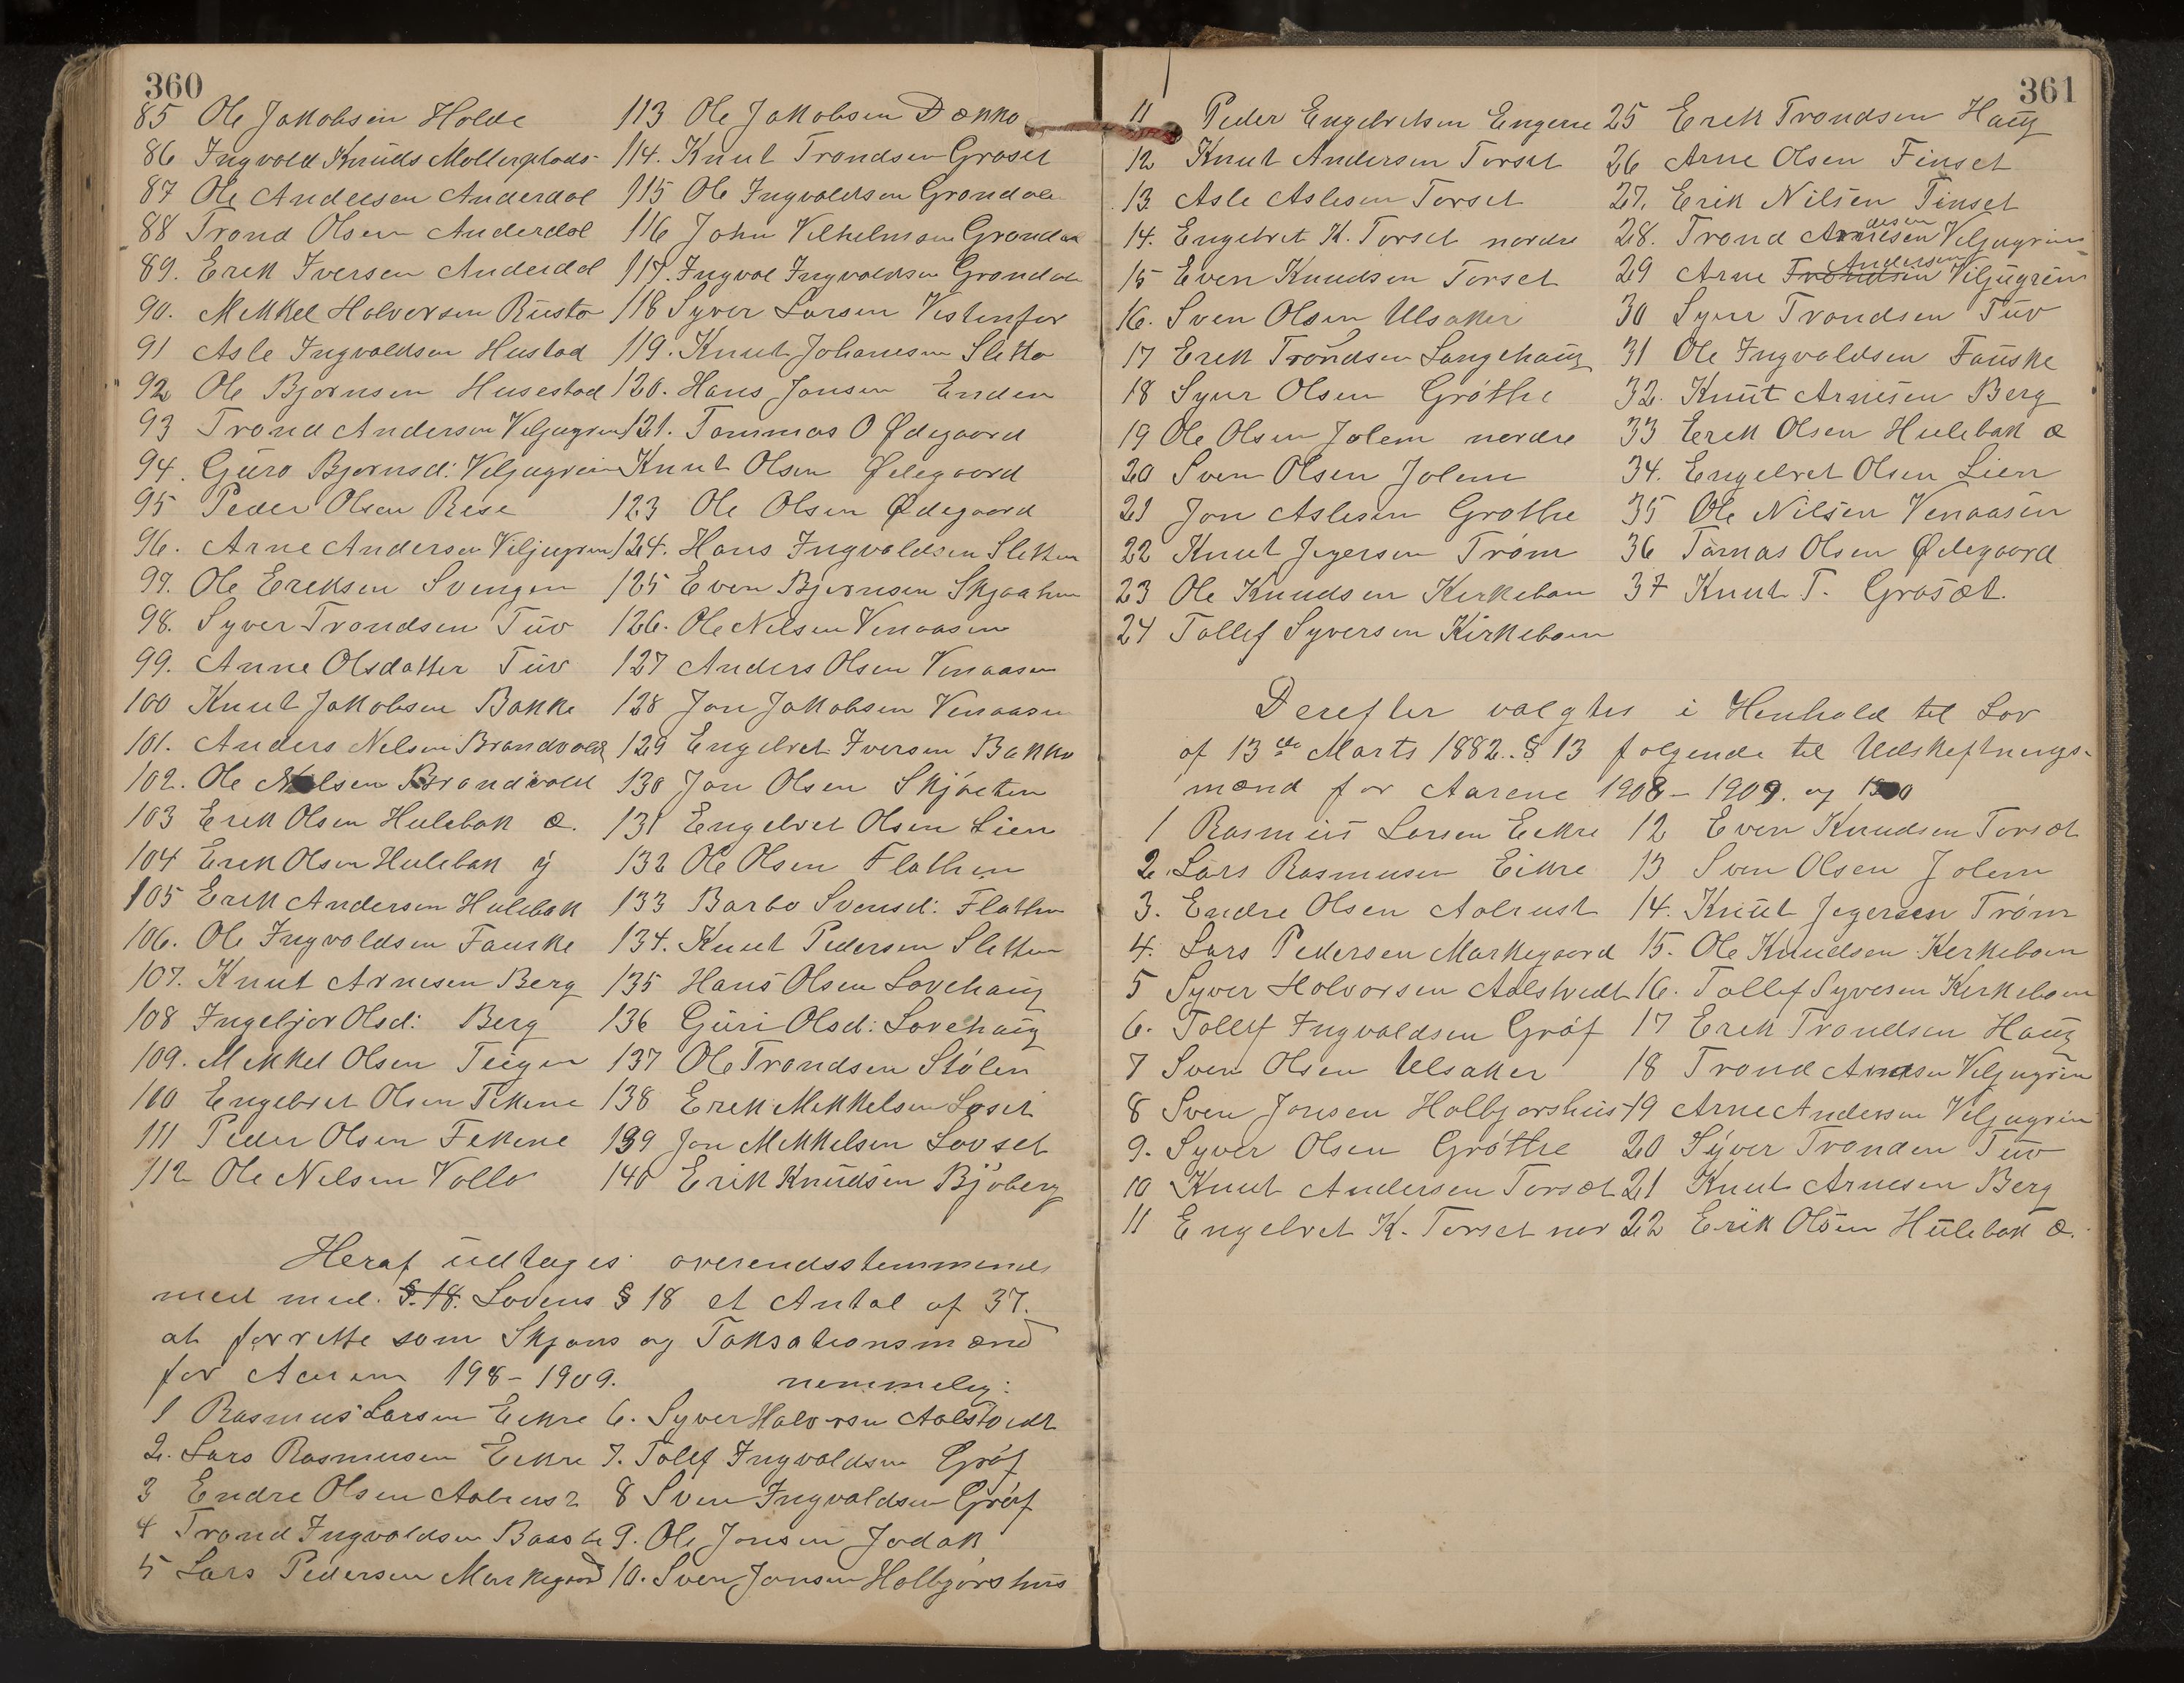 360
85 Ole Jakobsen Holde
86 Ingvold Knuds Mollerplads
87 Ole Andersen Anderdal
88 Trond Olsen Anderdal
89. Erik Iversen Anderdal
90. Mekkel Halvorsen Rusto
91 Asle Ingvaldsen Hustad
92 Ole Bjørnsen Husestad
93 Trond Andersen Veljugrein
94. Guro Bjørnsd: Veljugrein
95 Peder Olsen Rese
96. Arne Andersen Viljugrein
97. Ole Eriksen Svingen
98. Syver Trondsen Tuv
99. Anne Olsdatter Tuv
100 Knut Jakobsen Bakke
101. Anders Nelsen Brandvold
102. Ole Nelsen Brandvold
103 Erik Olsen Hulebak æ.
104 Erik Olsen Hulebak y
105 Erik Andersen Hulebak
106. Ole Ingvoldsen Fauske
107. Knut Arnesen Berg
108 Ingebjør Olsd: Berg
109. Mekkel Olsen Teigen
110 Engebret Olsen Fekene
111 Peder Olsen Fekene
112 Ole Nelsen Vollo
113 Ole Jakobsen Dokko
114. Knut Trondsen Groset
115 Ole Ingvaldsen Grøndalen
116 John Vilhelmsen Grøndal
117. Ingval Ingvaldsen Grøndalen
118 Syver Larsen Vestenfor
119. Knut Johanesen Sletto
120. Hans Jonsen Enden
121. Tommas O Ødegaard
Knut Olsen Ødegaard
123 Ole Olsen Ødegaard
124. Hans Ingvaldsen Sletten
125 Even Bjørnsen Skjaaten
126. Ole Nelsen Venaasen
127 Anders Olsen Venaasen
128 Jon Jakobsen Venaasen
129 Engebret Iversen Bakko
130 Jon Olsen Skjøeten
131 Engebret Olsen Lien
132 Ole Olsen Flathen
133 Barbo Svensd: Flathen
134. Knut Pedersen Sletten
135 Hans Olsen Lovehaug
136 Guri Olsd: Lovehaug
137 Ole Trondsen Stølen
138 Erik Mekkelsen Løset
139 Jon Mekkelsen Lovset
140 Erik Knudsen Bjøberg
Heraf udtoges overendsstemmende
med med. §.18. Lovens § 18 et Antal af 37.
at forrette som Skjøns og Taksationsmænd
for Aarene 198 - 1909. nemmelig:
1 Rasmus Larsen Eikre
2. Lars Rasmusen Eikre
3 Endre Olsen Aalrust
4 Trond Ingvaldsen
5 Lars Pedersen Markegaard
6. Syver Halvorsen Aalstvedt
7. Tolef Ingvaldsen Grøf
8 Sven Ingvaldsen Grøf
9. Ole Jonsen Jodak
10. Sven Jonsen Holbjørshus
361
11 Peder Engebretsen Engene
12 Knut Andersen Torset
13. Asle Aslesen Torset
14. Engebret K. Torset nordre
15 Even Knudsen Torset
16. Sven Olsen Ulsaker
17 Erik Trondsen Langehaug
18 Syver Olsen Grøthe
19 Ole Olsen Jolem nordre
20 Sven Olsen Jolem
21 Jon Aslesen Grøthe
22 Knut Jegersen Trøm
23 Ole Knudsen Kirkeboen
24 Tollef Syversen Kirkeboen
25 Erik Trondsen Haug
26 Arne Olsen Finset
27. Erik Nilsen Finset
28. Trond Arnesen Veljugrein
29 Arne Trondsen Andersen Viljugrein
30 Syver Trondsen Tuv
31 Ole Ingvoldsen Fauske
32. Knut Arnesen Berg
33 Erik Olsen Hulebak æ
34. Engebret Olsen Lien
35 Ole Nilsen Venaasen
36 Tomas Olsen Ødegaard
37 Knut T. Grøsæt.
Derefter valgtes i Henhold til Lov
af 13de Marts 1882. § 13 følgende til Udskeftnings-
mænd for Aarene 1908 - 1909. og
1 Rasmus Larsen Eikre
2. Lars Rasmusen Eikre
3. Endre Olsen Aalrust
4. Lars Pedersen Markegaard
5 Syver Holvorsen Aalstvedt
6. Tollef Ingvaldsen Grøf
7 Sven Olsen Ulsaker
8 Sven Jonsen Holbjørshus
9. Syver Olsen Grøthe
10 Knut Andersen Torsæt
11 Engebret K. Torset nor
12 Even Knudsen Torsæt
13 Sven Olsen Jolem
14. Knut Jegersen Trøm
15. Ole Knudsen Kerkeboen
16. Tollef Syvesen Kerkeboen
17 Erik Trondsen Haug
18 Trond Veljugrein
19 Arne Andersen Veljugrein
20 Syver Tronden Tuv
21 Knut Arnesen Berg
22 Erik Olsen Hulebak æ.